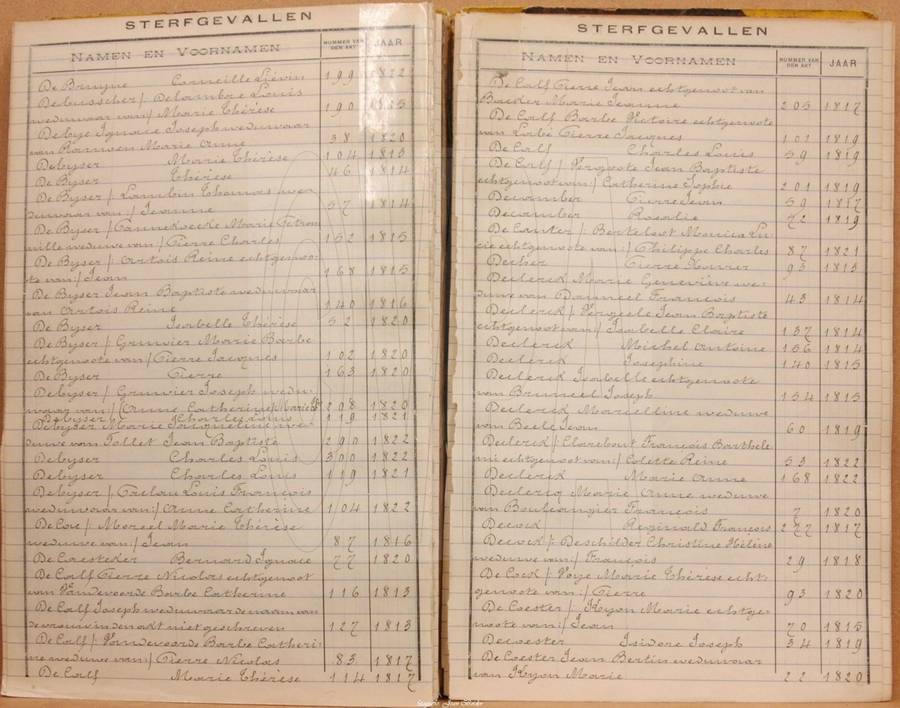 STERFGEVALLEN
NAMEN EN VOORNAMEN NUMMER VAN DEN AKT JAAR
De Bruyne Corneille Liévin 199 1822
Debusscher / Delambre Louis
weduwaar van / Marie Thérèse 190 1825
Debye Ignace Joseph weduwaar
van Marie Anne 38 1820
Debyser Marie Thérèse 104 1813
De Byser Thérèse 46 1814
De Byser / Lambin Thomas we-
duwaar van / Jeanne 57 1814
De Byser / Marie Petron
nille weduwe van / Pierre Charles 152 1815
De Byser / Artois Reine echtgenoo-
te van / Jean 168 1815
De Byser Jean Baptiste weduwaar
van Artois Reine 140 1816
De Byser Isabelle Thérèse 52 1820
De Byser / Grunier Marie Barbe
echtgenoote van / Pierre Jacques 102 1820
De Byser Pierre 163 1820
De Byser / Grunier Joseph wedu-
waar van / (Anne Catherine) 208 1820
Debyser Charles Louis 119 1821
Debyser Marie Jacqueline we-
duwe van Tollet Jean Baptiste 290 1822
Debyser Charles Louis 300 1822
Debyser Charles Louis 119 1821
Debyser / Louis François
weduwaar van / Anne Catherine 104 1822
De Cae / Moreel Marie Thérèse
weduwe van / Jean 87 1816
De Caesteker Bernard Ignace 77 1820
De Calf Pierre Nicolas echtgenoot
van Vandevoorde Barbe Catherine 116 1813
De Calf Joseph weduwaar de naam van
de vrouw in den akt niet geschreven 127 1813
De Calf / Vandevoorde Barbe Catheri-
ne weduwe van / Pierre Nicolas 83 1817
De Calf Marie Thérèse 114 1817
STERFGEVALLEN
NAMEN EN VOORNAMEN NUMMER VAN DEN AKT JAAR
De Calf Pierre Jean echtgenoot van
Backer Marie Jeanne 205 1817
De Calf Barbe Victoire echtgenoote
van Larbé Pierre Jacques 101 1819
De Calf Charles Louis 59 1819
De Calf / Vergoote Jean Baptiste
echtgenoot van / Catherine Sophie 201 1819
Decamber Pierre Jean 59 1817
Decamber Rosalie 72 1819
De Canter / Berteloot Marie Lu-
cie echtgenoote van / Philippe Charles 87 1821
Pierre Xavier 93 1813
Declerck Marie Geneviève we-
duwe van Danneel François 43 1814
Declerck / Vergeele Jean Baptiste
echtgenoot van / Isabelle Claire 137 1814
Declerck Michel Antoine 156 1814
Declerck Josephine 140 1815
Declerck Isabelle echtgenoote
van Bruneel Joseph 154 1815
Declerck Marcelline weduwe
van Beele Jean 60 1819
Declerck / Clarebout François Barthéle
mi echtgenoot van / Colette Reine 53 1822
Declerck Marie Anne 168 1822
Declercq Marie Anne weduwe
van Boulangier François 7 1820
Decock Reginald François 277 1817
Decock / Deschilder Christine Hélène
weduwe van / François 29 1818
De Cock / Voye Marie Thérèse echt-
genoote van / Pierre 93 1820
De Coester / Kyon Marie echtge-
noote van / Jean 70 1815
Decoester Isidore Joseph 34 1819
De Coester Jean Bertin weduwaar
van Kyon Marie 22 1820